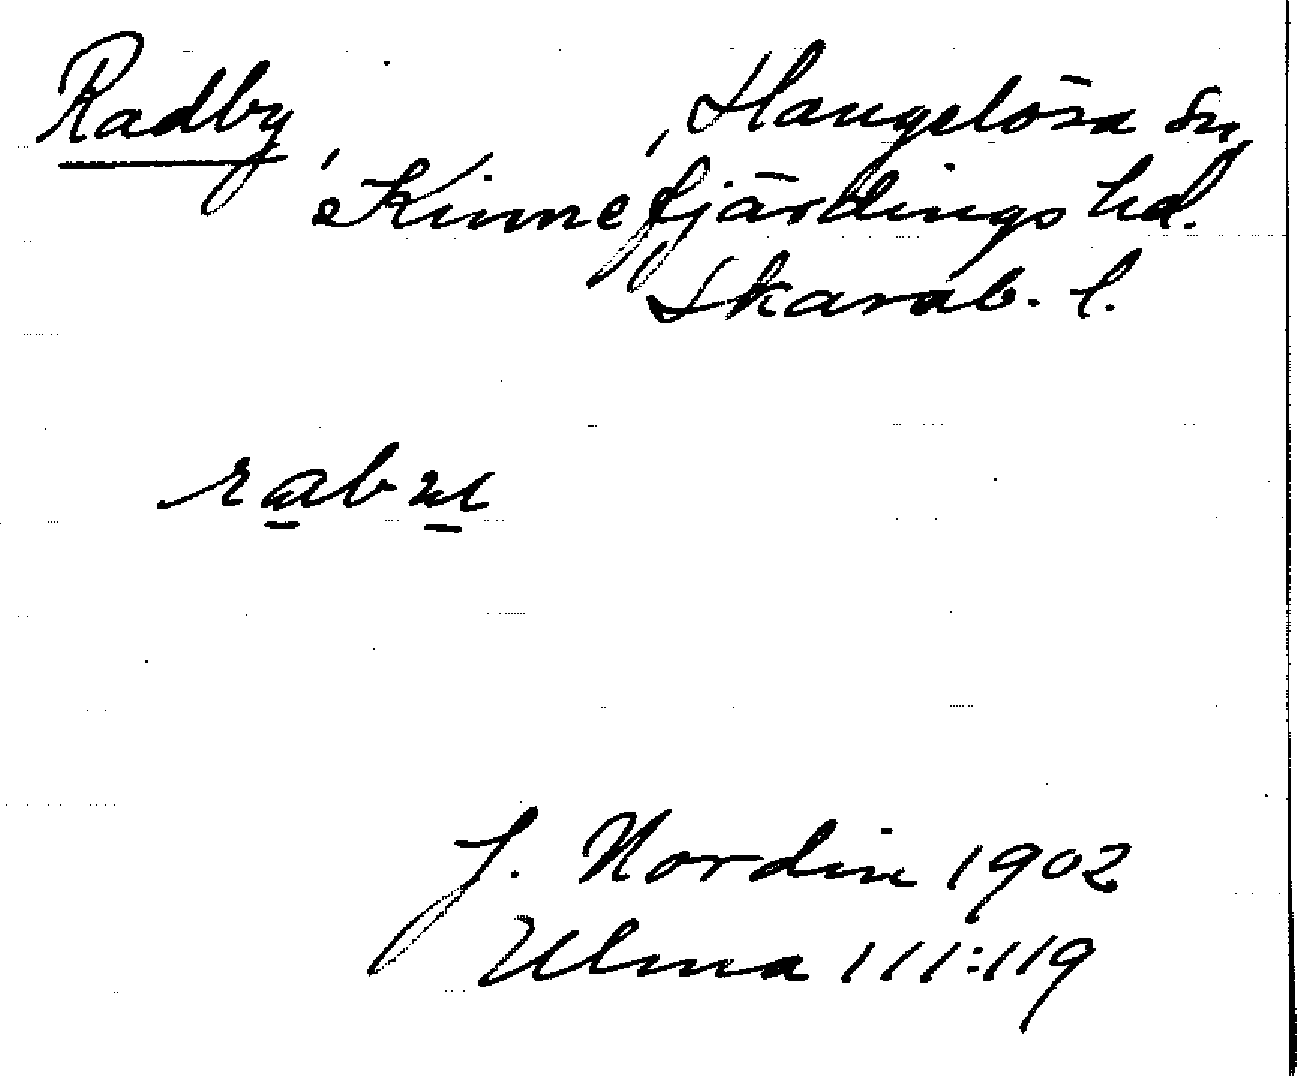 Radby, Haugelösa sn,
Kinnefjärdings hd.
Skarab. l.
J. Nordin 1902
Ulma 111:119